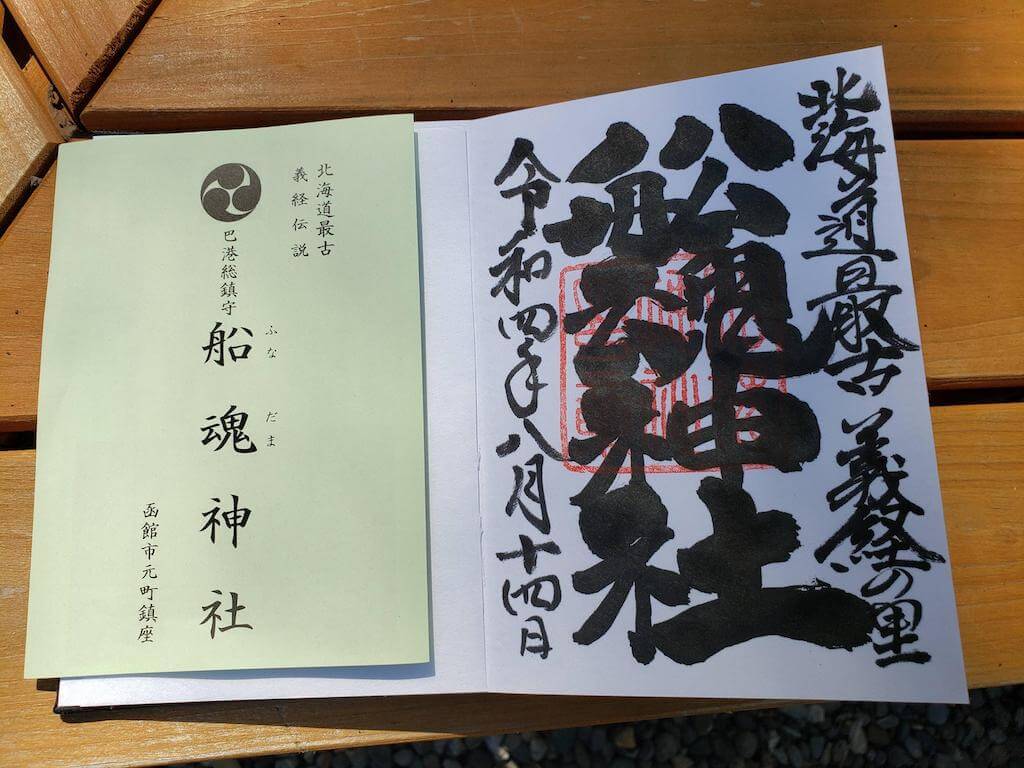 北海道最古
義経伝説
巴港総鎮守
船魂神社
ふなだま
函館市元町鎮座
北海道最古 義経の里
船魂神社
令和四年八月十四日